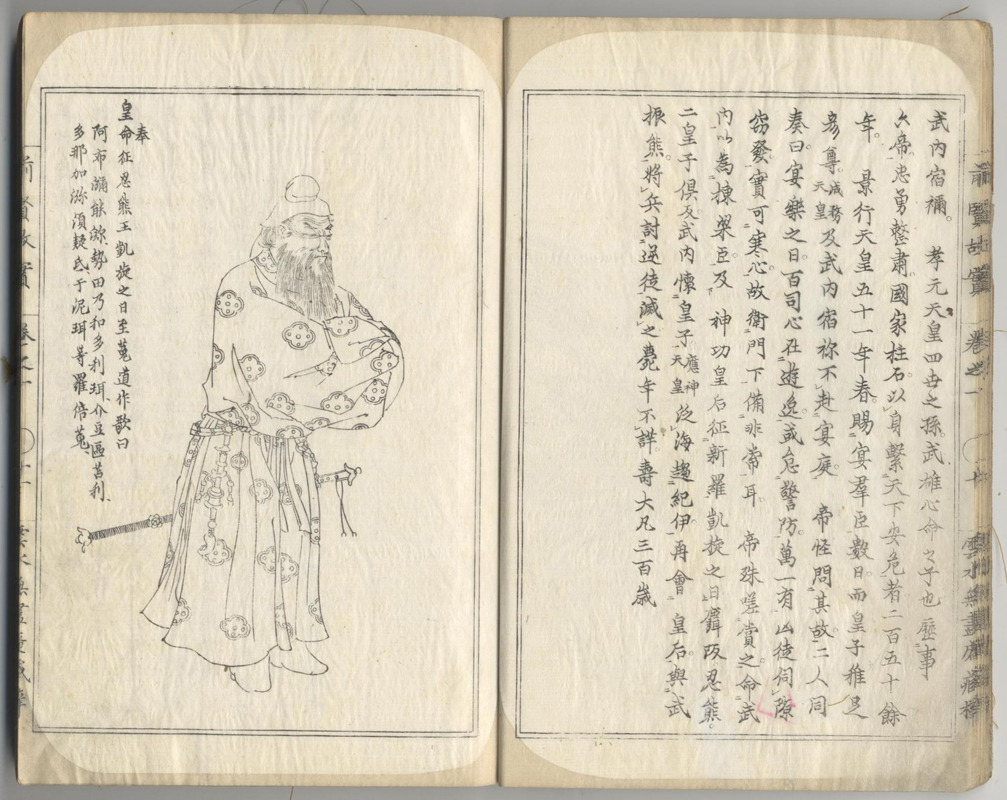 武内宿禰。 孝元天皇四世之孫。武雄心命之子也歷事
六帝。忠勇整肅。國家柱石。以身繫天下安危者二百五十餘
年。 景行天皇五十一年春賜宴羣臣數日。而皇子稚足
彦尊。成務天皇及武内宿祢不赴宴庭。 帝怪問其故。二人同
奏曰。宴樂之日。百司心在遊逸。或怠警防。萬一有凶徒伺隙
窃發實可寒心。故衛門下備非常耳。 帝殊嗟賞之。命武
内以為棟梁臣。及 神功皇后征新羅凱旋之日。麛坂忍熊
二皇子俱反。武内懷皇子應神天皇泛海趨紀伊。再會 皇后。與武
振熊。將兵討逆徒滅之。薨年不詳。壽大凡三百歲
奉
皇命征忍熊王凱旋之日至菟道作歌曰
阿布瀰能瀰勢田乃和多利珥介豆區苔利
多那加瀰須疑氐于泥珥等羅倍菟
前賢故實 卷之一 十 雲水無盡庵藏梓